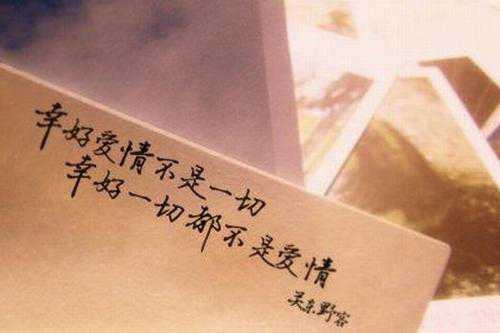 幸好爱情不是一切
幸好一切都不是爱情
关东野客